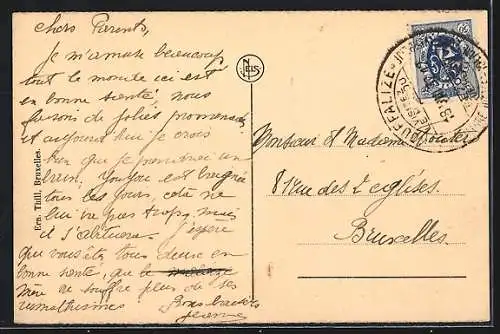 chers Parents,
Je m'amuse beaucoup
tout le monde ici est
en bonne santé. Nous
faisons de jolies promenades
et aujourd'hui je crois
bien que je prendrai un
bain. Youyou est
tous les jours, cela ne
lui va pas trop, mais
il s'habituera. J'espère
que vous êtes tous deux en
bonne santé, que
mère ne souffre plus de ses
rumathismes Bons baisers
Jeanne
Ern. Thill, Bruxelles.
NELS
HOUFFALIZE
Monsieur et Madame
81 rue des 2 eglises.
Bruxelles.